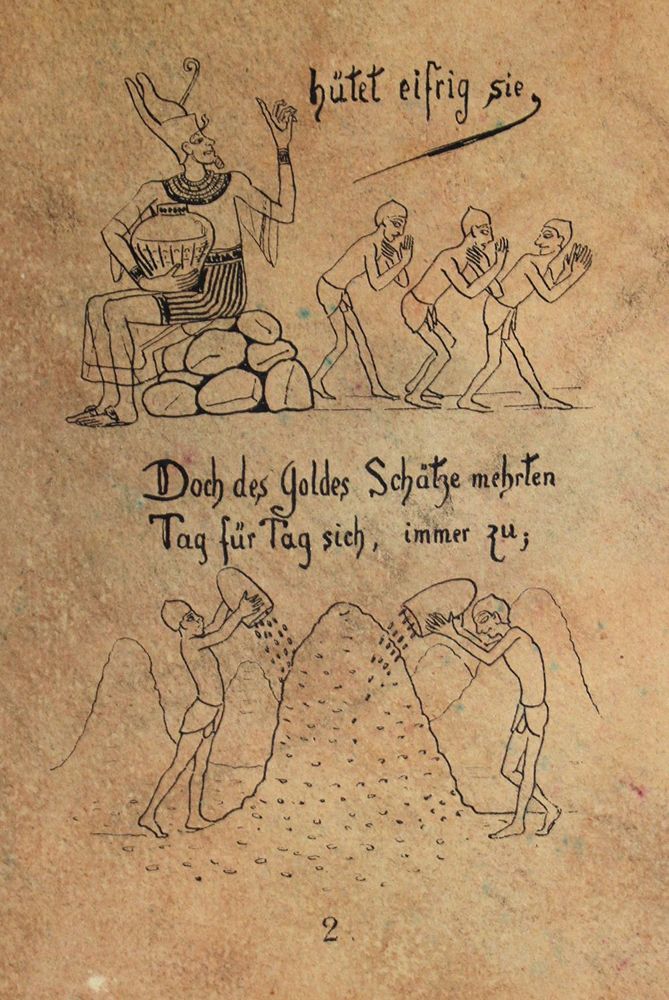 hütet eifrig sie,
Doch des Goldes Schätze mehrten
Tag für Tag sich, immer zu;
2